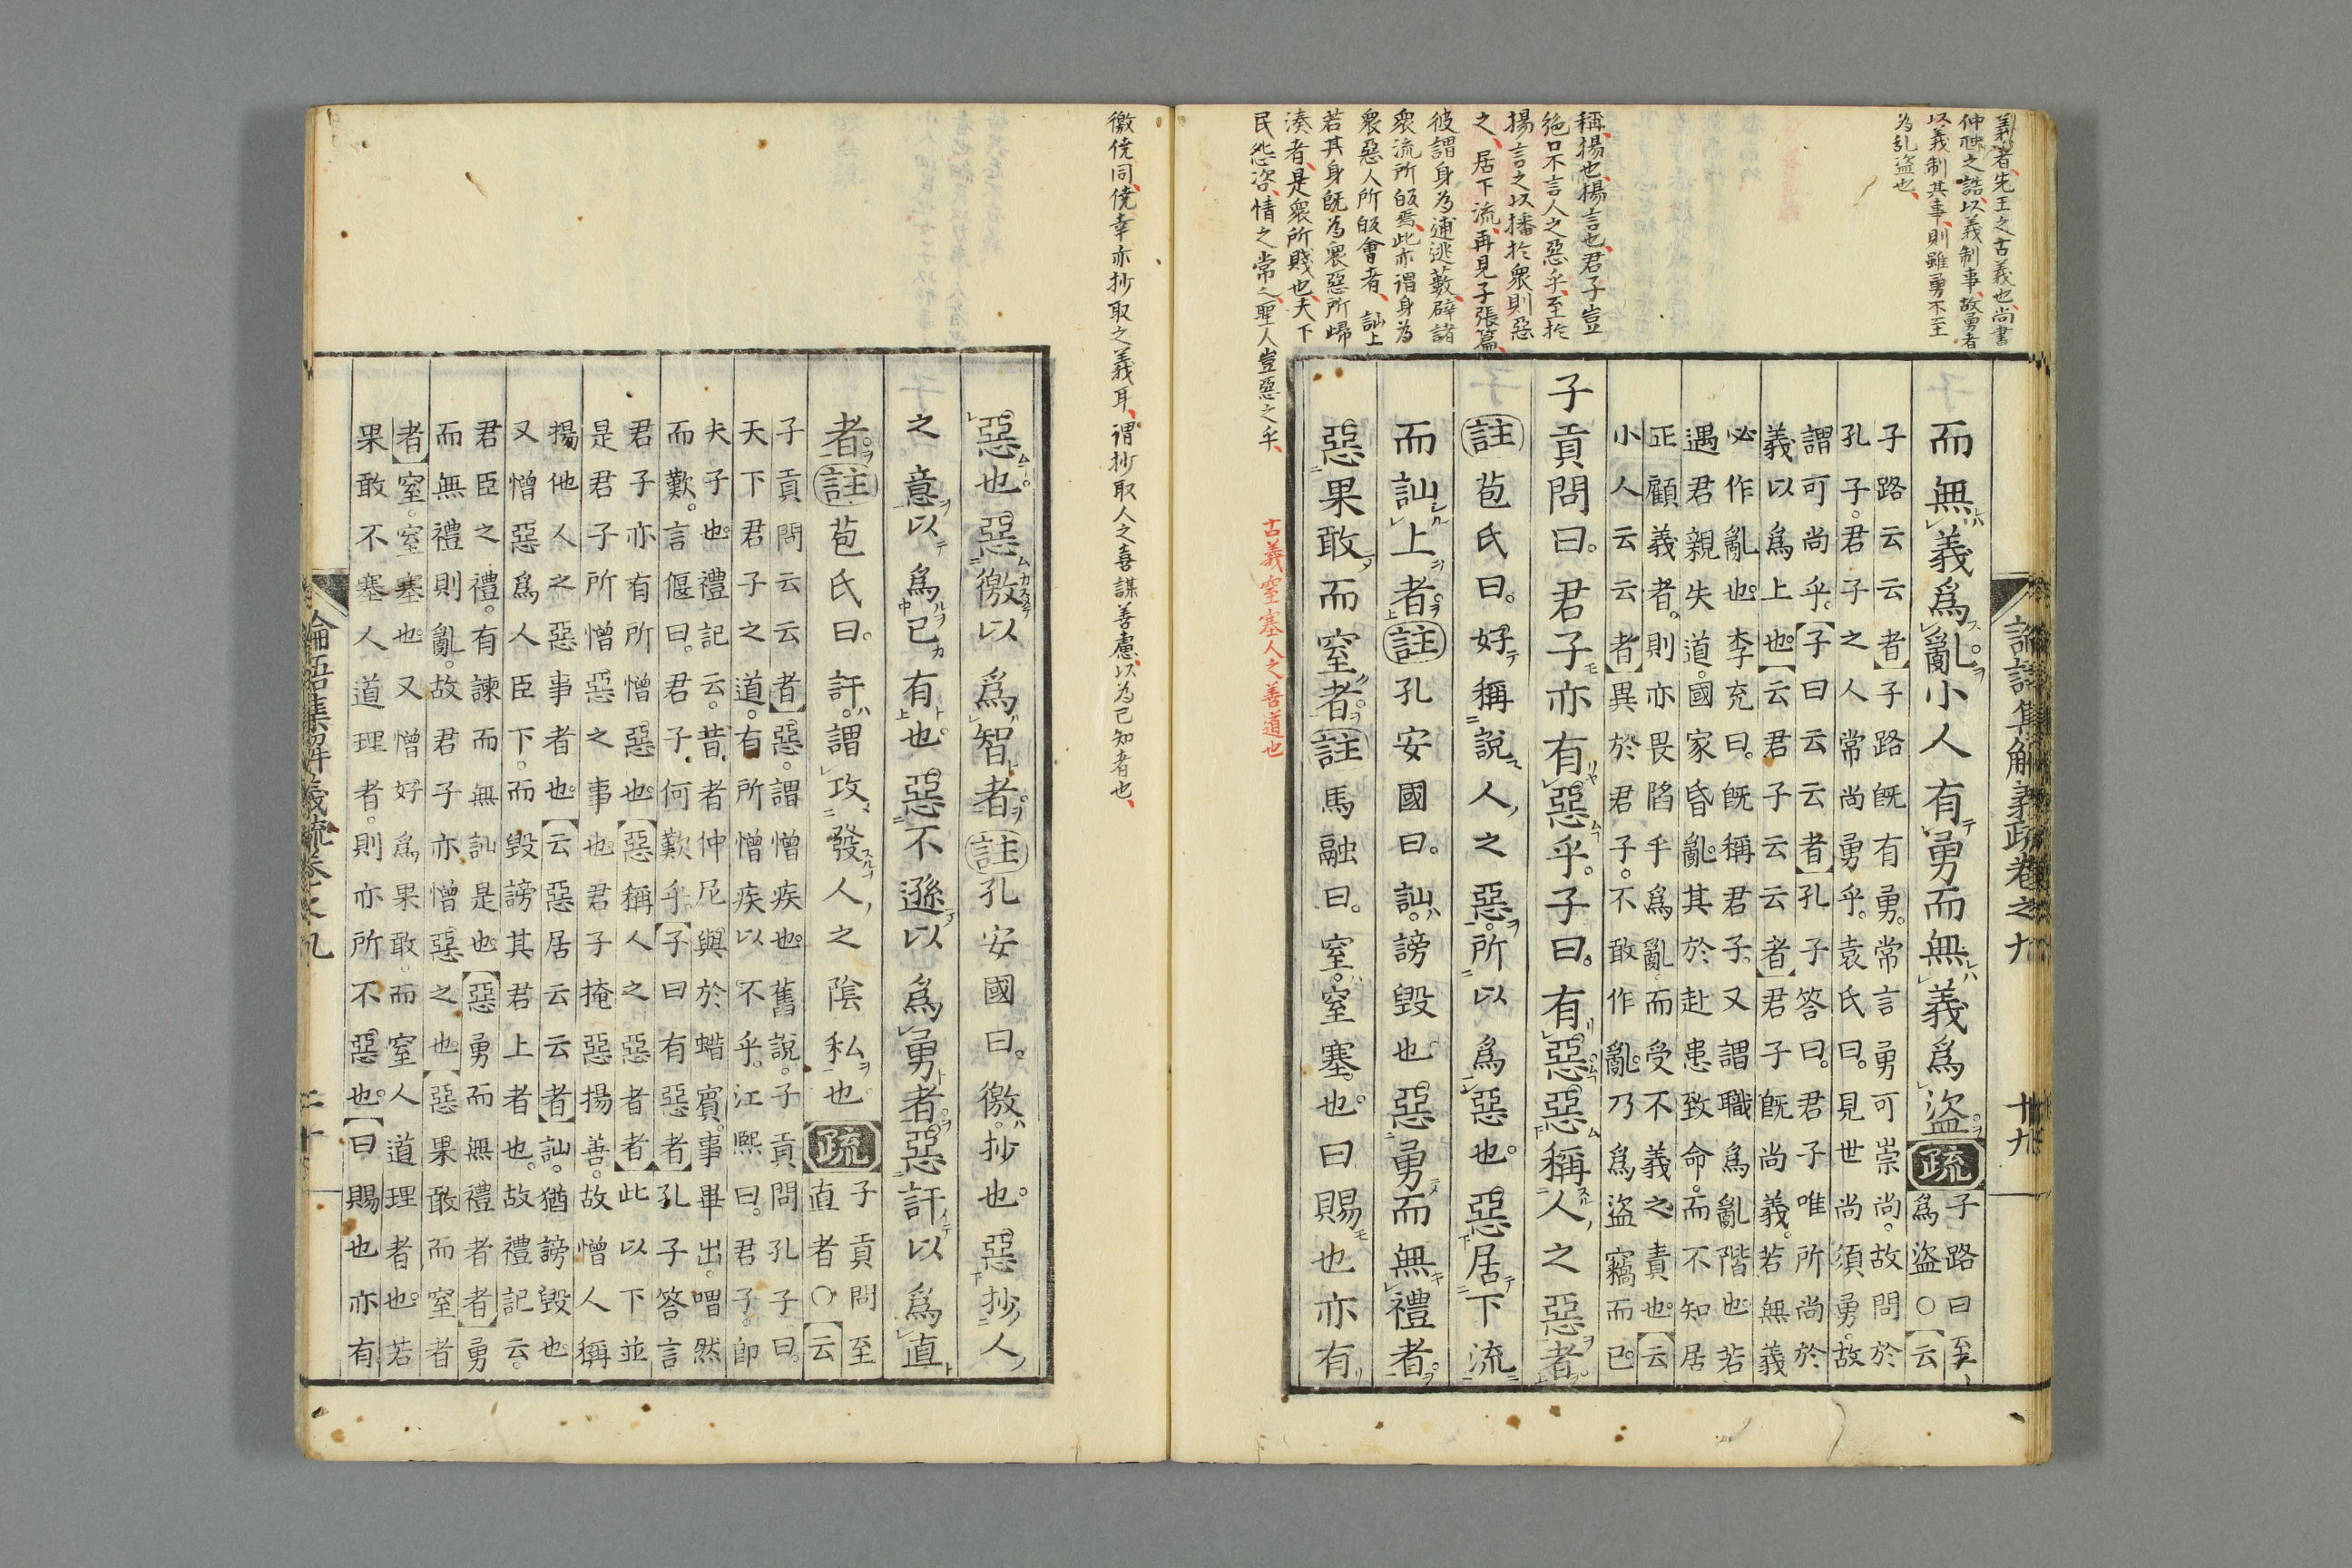 義者先王之古義也、尚書
仲虺之誥、以義制事、故勇者
以義制其事、則雖勇不至
為乱盗也、
稱揚也、揚言也、君子豈
絶口不言人之惡乎、至於
揚言之以播於衆則惡
之、居下流、再見子張篇、
彼謂身為逋逃藪、辟諸
衆流所皈焉、此亦謂身為
衆惡人所皈會者、訕上
若其身既為衆惡所歸
湊者、是衆所賤也、天下
民怨咨、情之常、聖人豈惡之乎、
論語集解義疏卷之九 廿九
而無義爲亂小人有勇而無義爲盗疏子路曰至
爲盗○【云
子路云云者】子路旣有勇。常言勇可崇尚。故問於
孔子。君子之人常尚勇乎。袁氏曰。見世尚須勇。故
謂可尚乎。【子曰云云者】孔子答曰。君子唯所尚於
義以爲上也。【云君子云云者】君子旣尚義。若無義
必作亂也。李充曰。旣稱君子。又謂職爲亂階也。若
遇君親失道。國家昏亂。其於赴患致命。而不知居
正顧義者。則亦畏陷乎爲亂。而受不義之責也。【云
小人云云者】異於君子。不敢作亂。乃爲盗竊而已。
子貢問曰。君子亦有惡乎。子曰。有惡惡稱人之惡者
註苞氏曰。好稱說人之惡。所以爲惡也。惡居下流
而訕上者註孔安國曰。訕。謗毀也。惡勇而無禮者。
惡果敢而窒者註馬融曰。窒。窒塞。也。曰賜也亦有
古義窒塞人之善道也
徼僥同、僥幸亦抄取之義耳、謂抄取人之喜謀善慮、以為己知者也、
惡也。惡徼以爲智者註孔安國曰。徼。抄也。惡抄人
之意以爲己有也。惡不遜以爲勇者。惡訐以爲直
者。註苞氏曰。訐。謂攻發人之陰私也疏子貢問至
直者○【云
子貢問云云者】惡。謂憎疾也。舊說。子貢問孔子曰。
天下君子之道。有所憎疾以不乎。江熙曰。君子。卽
夫子也。禮記云。昔者仲尼與於蜡賓。事畢出。喟然
而歎。言偃曰。君子。何歎乎。【子曰有惡者】孔子答言
君子亦有所憎惡也。【惡稱人之惡者者】此以下並
是君子所憎惡之事也。君子掩惡揚善。故憎人稱
揚他人之惡事者也。【云惡居云云者】訕。猶謗毀也。
又憎惡爲人臣下。而毀謗其君上者也。故禮記云。
君臣之禮。有諫而無訕是也。【惡勇而無禮者者】勇
而無禮則亂。故君子亦憎惡之也。【惡果敢而窒者
者】窒。窒塞也。又憎好爲果敢。而窒人道理者也。若
果敢不塞人道理者。則亦所不惡也。【曰賜也亦有
論語集解義疏卷之九 二十